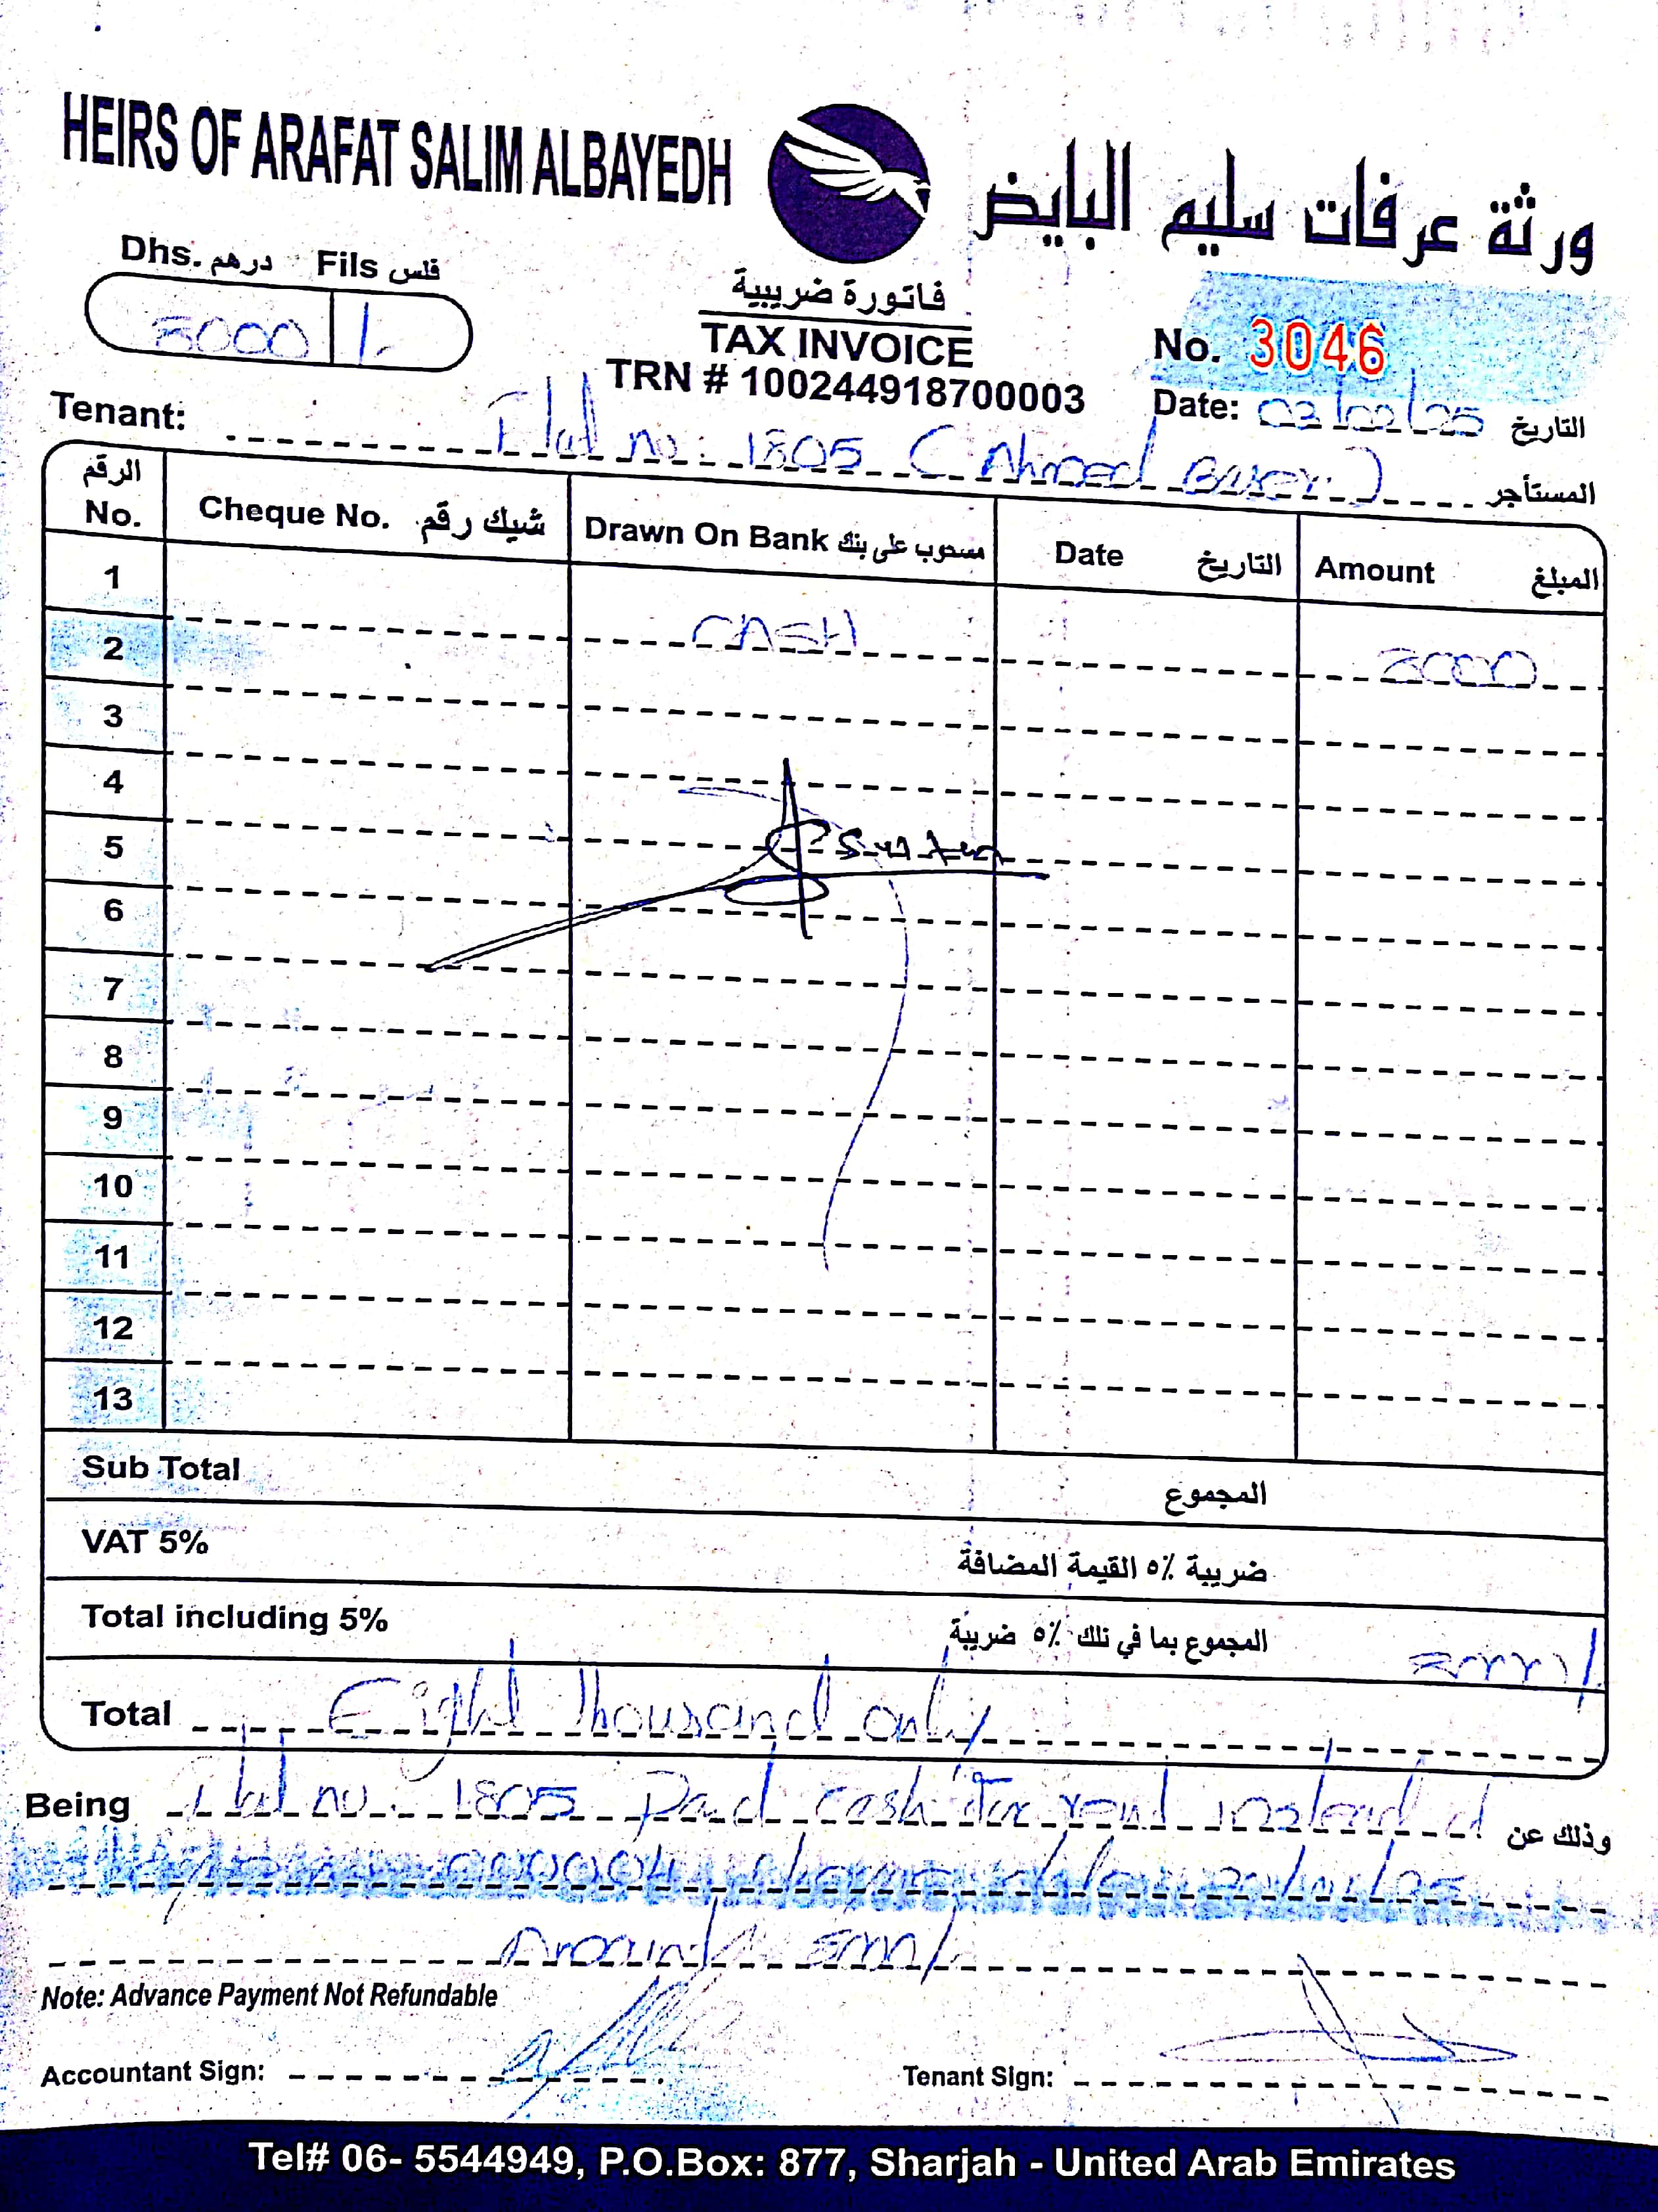 HEIRS OF ARAFAT SALIM ALBAYEDH
ورثة عرفات سليم البايض
Dhs. درهم Fils فلس
فاتورة ضريبية
TAX INVOICE
TRN # 100244918700003
No. 3046
Date: التاريخ
Tenant: Flat no: 1805 (Ahmed المستأجر
الرقم No. Cheque No. شيك رقم Drawn On Bank مسحوب على بنك Date التاريخ Amount المبلغ
1 CASH
2
3
4
5
6
7
8
9
10
11
12
13
Sub Total المجموع
VAT 5% ضريبة ٥٪ القيمة المضافة
Total including 5% المجموع بما في تلك ٥٪ ضريبة
Total Eight thousand only
Being Flat no. 1805 Paid cash for rent instead of وذلك عن
000004
Amount
Note: Advance Payment Not Refundable
Accountant Sign: Tenant Sign:
Tel# 06- 5544949, P.O.Box: 877, Sharjah - United Arab Emirates